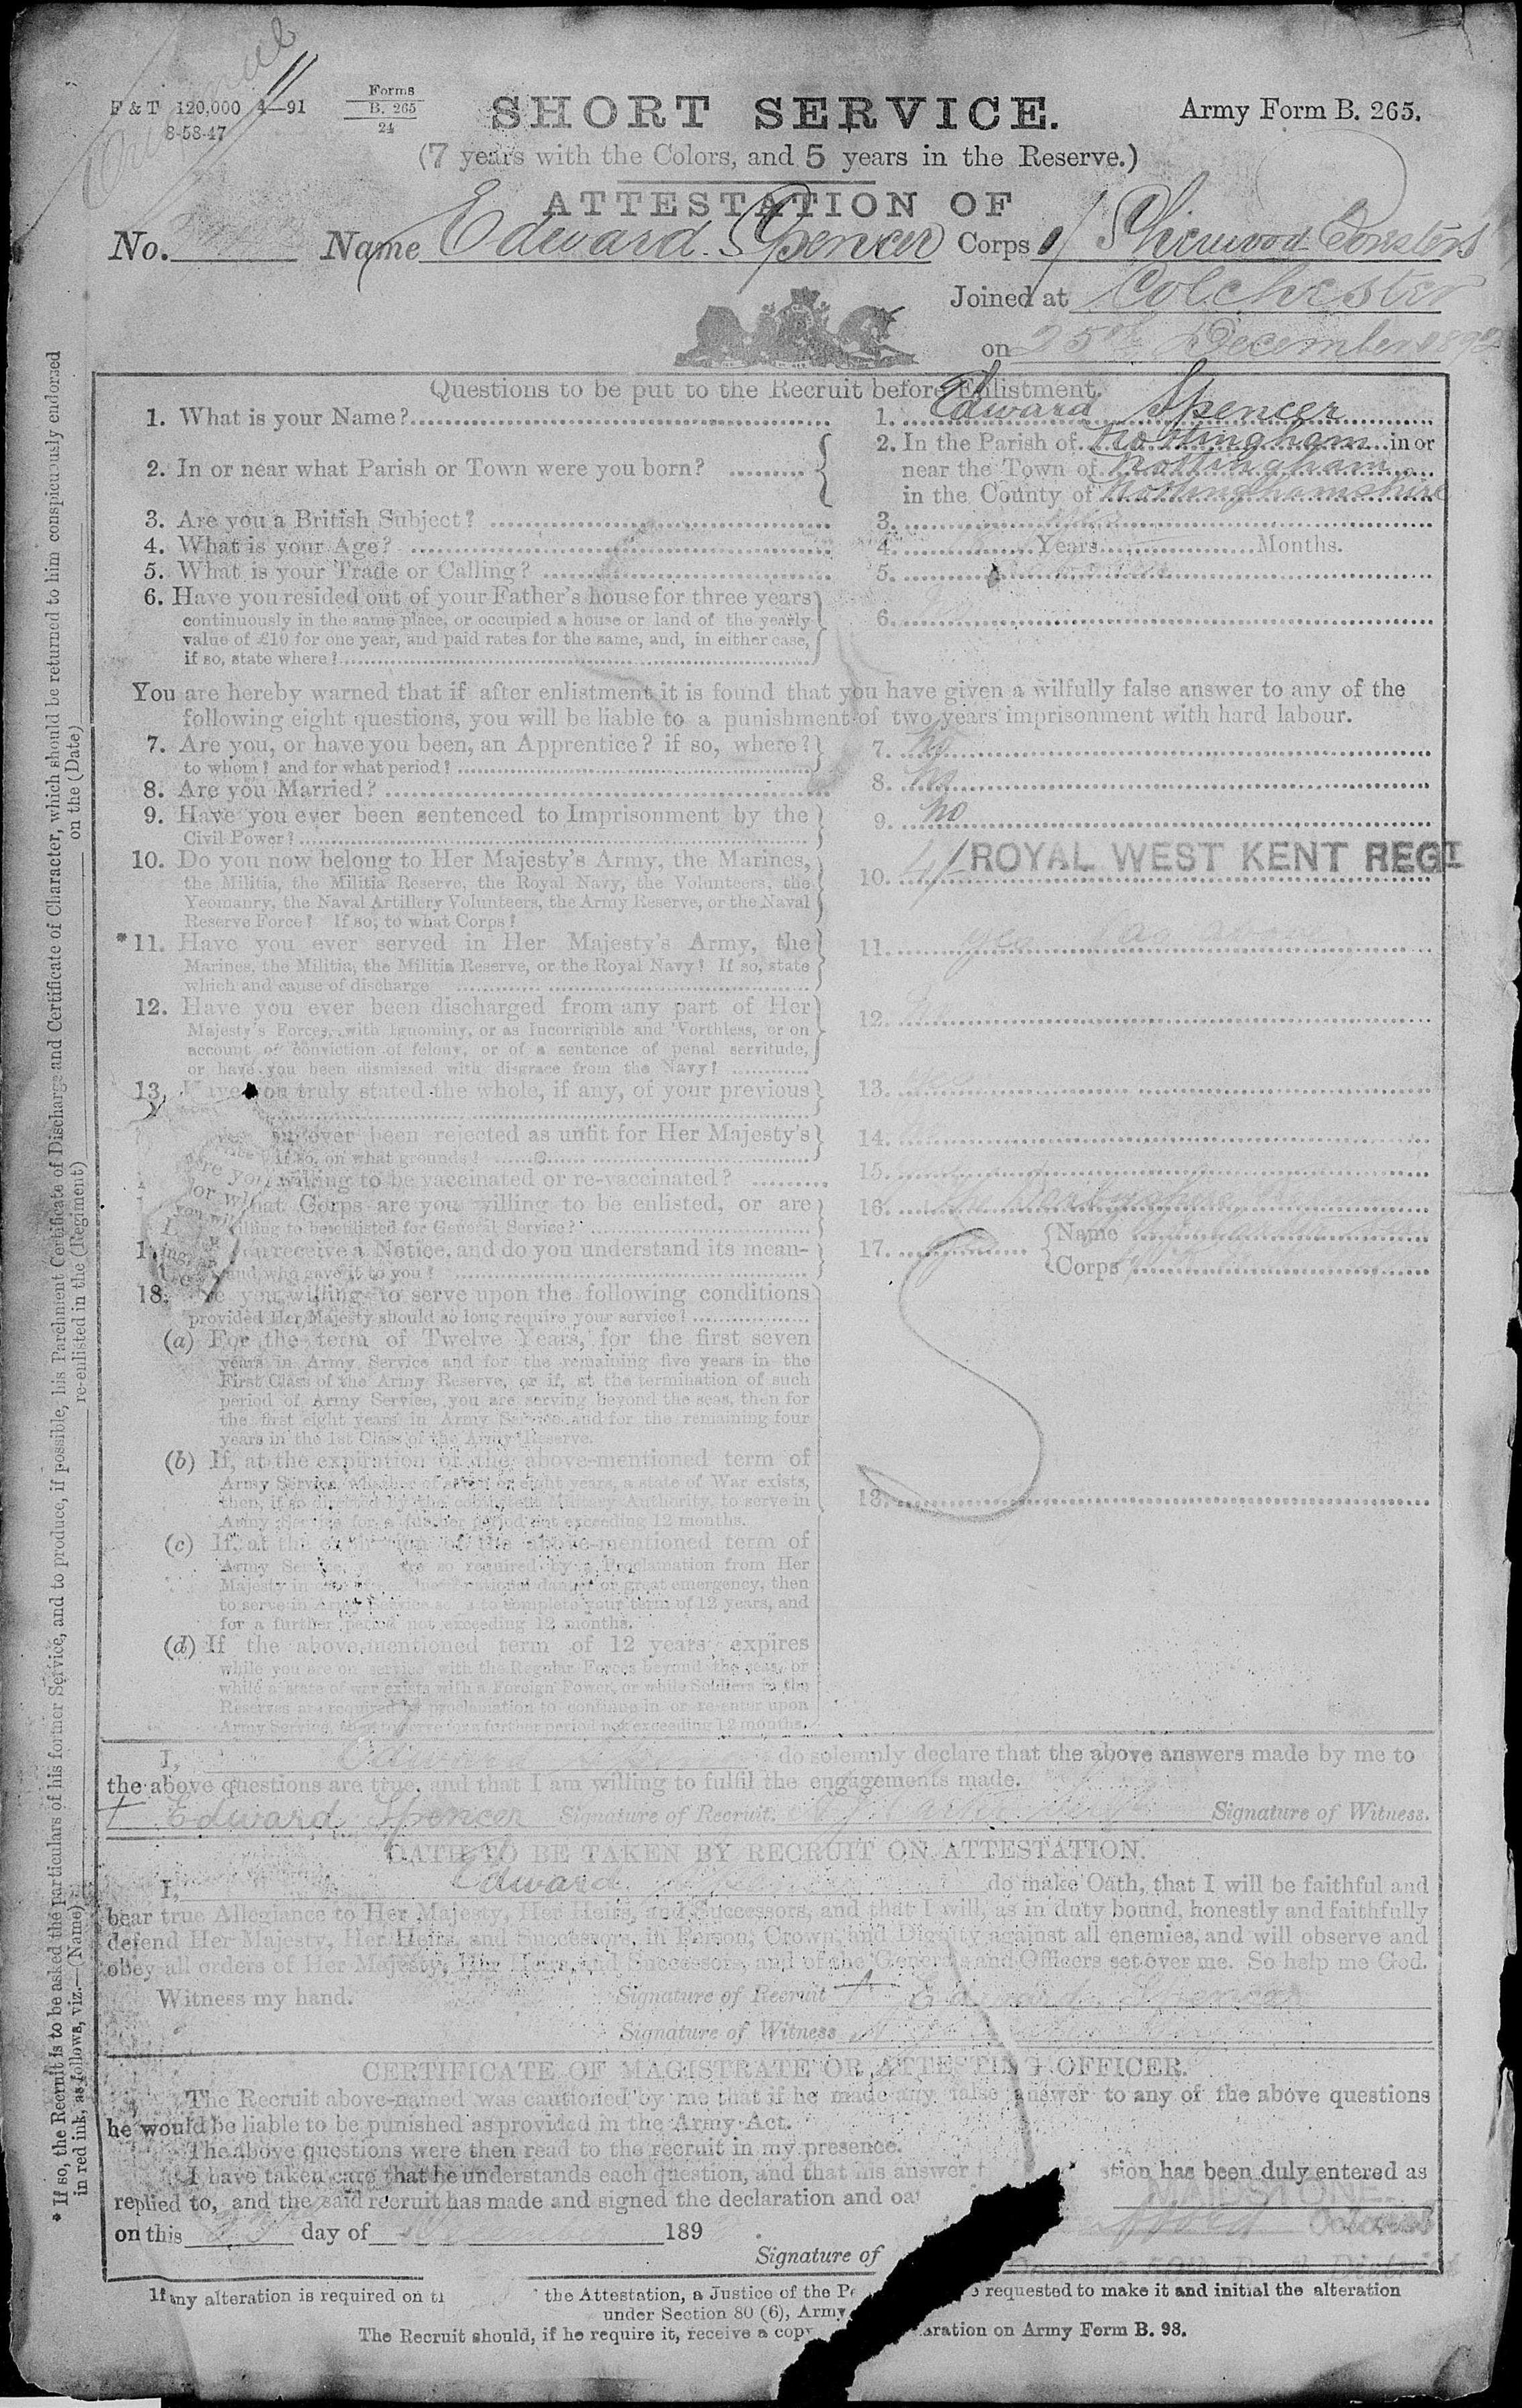 F & T 120,000 4—91
8-58-47
Forms
B. 265
24
SHORT SERVICE.
Army Form B. 265.
(7 years with the Colors, and 5 years in the Reserve.)
ATTESTATION OF
No. Name Edward Spencer Corps Sherwood Foresters
Joined at Colchester
on 25th December 1892
Questions to be put to the Recruit before Enlistment.
1. What is your Name? 1. Edward Spencer
2. In or near what Parish or Town were you born? 2. In the Parish of Nottingham in or
near the Town of Nottingham
in the County of Nottinghamshire
3. Are you a British Subject? 3.
4. What is your Age? 4. Years Months.
5. What is your Trade or Calling? 5.
6. Have you resided out of your Father's house for three years 6.
continuously in the same place, or occupied a house or land of the yearly
value of £10 for one year, and paid rates for the same, and, in either case,
if so, state where?
You are hereby warned that if after enlistment it is found that you have given a wilfully false answer to any of the
following eight questions, you will be liable to a punishment of two years imprisonment with hard labour.
7. Are you, or have you been, an Apprentice? if so, where? 7. No
to whom? and for what period?
8. Are you Married? 8. No
9. Have you ever been sentenced to Imprisonment by the 9. No
Civil Power?
10. Do you now belong to Her Majesty's Army, the Marines, 10. ROYAL WEST KENT REGT
the Militia, the Militia Reserve, the Royal Navy, the Volunteers, the
Yeomanry, the Naval Artillery Volunteers, the Army Reserve, or the Naval
Reserve Force? If so, to what Corps?
*11. Have you ever served in Her Majesty's Army, the 11. Yes (as above)
Marines, the Militia, the Militia Reserve, or the Royal Navy? If so, state
which and cause of discharge
12. Have you ever been discharged from any part of Her 12.
Majesty's Forces, with Ignominy, or as Incorrigible and Worthless, or on
account of conviction of felony, or of a sentence of penal servitude,
or have you been dismissed with disgrace from the Navy?
13. you truly stated the whole, if any, of your previous 13.
ever been rejected as unfit for Her Majesty's 14.
If so, on what grounds?
willing to be vaccinated or re-vaccinated? 15.
what Corps are you willing to be enlisted, or are 16. The Derbyshire
willing to be enlisted for General Service?
receive a Notice, and do you understand its mean- 17. Name
and who gave it to you? Corps
18. you willing to serve upon the following conditions
provided Her Majesty should so long require your service?
(a) For the term of Twelve Years, for the first seven
years in Army Service and for the remaining five years in the
First Class of the Army Reserve, or if, at the termination of such
period of Army Service, you are serving beyond the seas, then for
the first eight years in Army Service and for the remaining four
years in the 1st Class of the Army Reserve.
(b) If, at the expiration of the above-mentioned term of
Army Service, whether of seven or eight years, a state of War exists,
then, if so directed by the competent Military Authority, to serve in 18.
Army Service for a further period not exceeding 12 months.
(c) If, at the expiration of the above-mentioned term of
Army Service, you are so required by a Proclamation from Her
Majesty in national danger or great emergency, then
to serve in Army Service so as to complete your term of 12 years, and
for a further period not exceeding 12 months.
(d) If the above-mentioned term of 12 years expires
while you are on service with the Regular Forces beyond the seas, or
while a state of war exists with a Foreign Power, or while Soldiers in the
Reserves are required by proclamation to continue in or re-enter upon
Army Service, then to serve for a further period not exceeding 12 months.
I, Edward Spencer do solemnly declare that the above answers made by me to
the above questions are true, and that I am willing to fulfil the engagements made.
Edward Spencer Signature of Recruit. Signature of Witness.
OATH TO BE TAKEN BY RECRUIT ON ATTESTATION.
I, Edward do make Oath, that I will be faithful and
bear true Allegiance to Her Majesty, Her Heirs, and Successors, and that I will, as in duty bound, honestly and faithfully
defend Her Majesty, Her Heirs, and Successors, in Person, Crown, and Dignity against all enemies, and will observe and
obey all orders of Her Majesty, Her Heirs, and Successors, and of the Generals and Officers set over me. So help me God.
Witness my hand. Signature of Recruit Edward Spencer
Signature of Witness
CERTIFICATE OF MAGISTRATE OR ATTESTING OFFICER.
The Recruit above-named was cautioned by me that if he made any false answer to any of the above questions
he would be liable to be punished as provided in the Army Act.
The above questions were then read to the recruit in my presence.
I have taken care that he understands each question, and that his answer has been duly entered as
replied to, and the said recruit has made and signed the declaration and MAIDSTONE.
on this day of 189 Colonel
Signature of
If any alteration is required on the Attestation, a Justice of the requested to make it and initial the alteration
under Section 80 (6), Army
The Recruit should, if he require it, receive a copy on Army Form B. 98.
* If so, the Recruit is to be asked the particulars of his former Service, and to produce, if possible, his Parchment Certificate of Discharge and Certificate of Character, which should be returned to him conspicuously endorsed
in red ink, as follows, viz.—(Name) re-enlisted in the (Regiment) on the (Date)